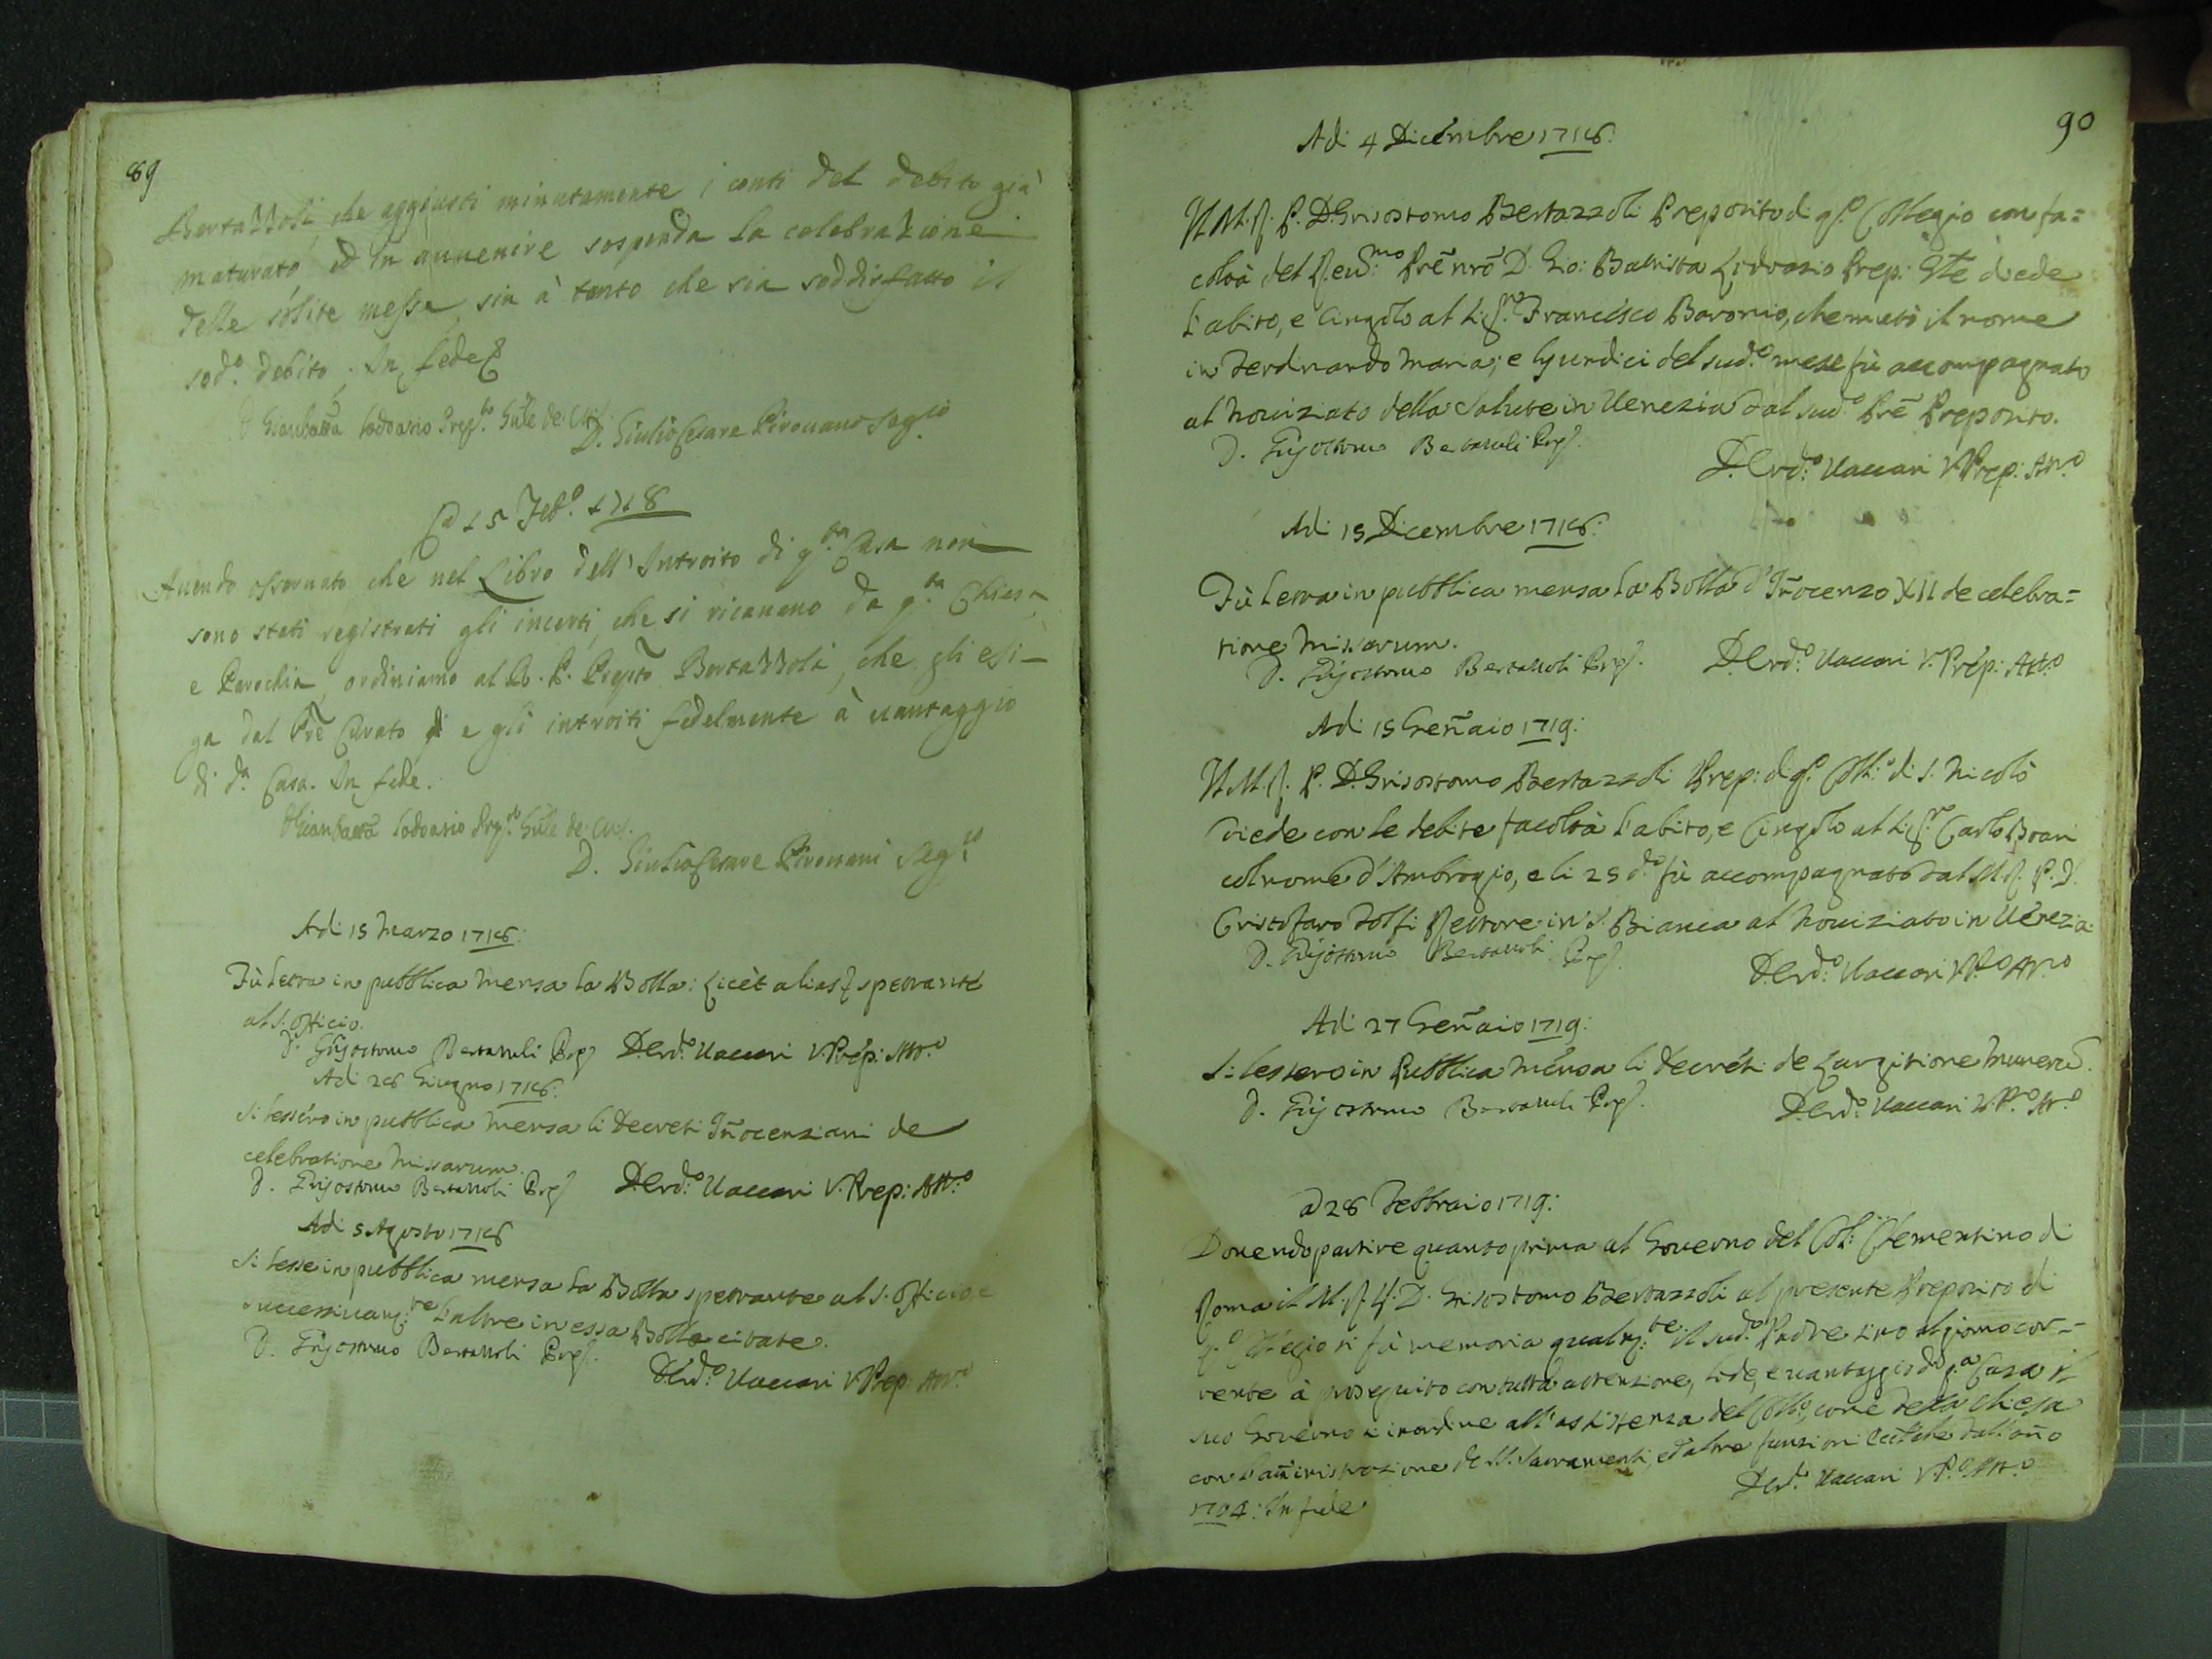 89
Bertazzoli, che aggiusti minutamente i conti del debito già
maturato, ed in auuenire sospenda la celebrazione
delle solite messe, sin à tanto che sia soddisfatto il
sod.º debito. In fede
D. Gianbatta Lodoario Prep.to Gñle de CRS.
D. Giulio Cesare Pirouano Seg.io
A 15 Feb.º 1718
Auendo osseruato che nel Libro dell'Introito di q.ta Casa non
sono stati registrati gli incerti, che si ricauano da q.ta Chiesa,
e Parochia, ordiniamo al R. P. Prepto Bertazzoli, che gli esi-
ga dal Prẽ Curato e gli introiti fedelmente à uantaggio
di d.a Casa. In fede.
D. Gianbatta Lodoario Prep.to Gñle de CRS.
D. Giulio Cesare Pirouani Seg.io
Adi 15 Marzo 1718:
Fù letta in pubblica mensa la Bolla: Licèt alias spettante
al S. Officio.
D. Grisostomo Bertazzoli Prep. D. Erd.º Uaccari V. Prep: Att.º
Adi 28 Giugno 1718:
Si lessero in pubblica mensa li Decreti Iñocenziani de
celebratione Missarum.
D. Grisostomo Bertazzoli Prep. D. Erd.º Uaccari V. Prep: Att.º
Adi 5 Agosto 1718
Si lesse in pubblica mensa la Bolla spettante al S. Officio e
successiuam.te l'altre in essa Bolla citate.
D. Grisostomo Bertazzoli Prep.
D. Erd.º Uaccari V. Prep: Att.º
90
Adi 4 Dicembre 1718:
Il M. R. P. D. Grisostomo Bertazzoli Preposito di q.º Collegio con fa=
coltà del Reu.mo Prẽ nrõ D. Gio: Battista Lodoario Prep: Gñle diede
l'abito, e Cingolo al Sig.re Francesco Baronio, che mutò il nome
in Ferdinando Maria; e gli undici del sud.º mese fù accompagnato
al Nouiziato della Salute in Uenezia dal sud.º Prẽ Preposito.
D. Grisostomo Bertazzoli Prep.
D. Erd.º Uaccari V. Prep: Att.º
Adi 15 Dicembre 1718:
Fù letta in pubblica mensa la Bolla d'Iñocenzo XII de celebra=
tione Missarum.
D. Grisostomo Bertazzoli Prep. D. Erd.º Uaccari V. Prep: Att.º
Adi 15 Geñaio 1719:
Il M. R. P. D. Grisostomo Bertazzoli Prep: di q.º Coll.º di S. Nicolò
diede con le debite facoltà l'abito, e Cingolo al Sig.r Carlo Boari
col nome d'Ambrogio, e li 25 d.º fù accompagnato dal M. R. P. D.
Cristofaro Dolfi Rettore in S. Bianca al Nouiziato in Uenezia
D. Grisostomo Bertazzoli Prep.
D. Erd.º Uaccari V. P.º Att.º
Adi 27 Geñaio 1719:
Si lessero in Pubblica Mensa li Decreti de Largitione Munerũ.
D. Grisostomo Bertazzoli Prep.
D. Erd.º Uaccari V. P.º Att.º
A 28 Febbraio 1719:
Douendo partire quanto prima al Gouerno del Coll: Clementino di
Roma il M. R. P. D. Grisostomo Bertazzoli al presente Preposito di
q.º Collegio si fà memoria qualm.te il sud.º Padre sino al giorno cor-
rente à proseguito con tutta attenzione, fede, e uantaggio di q.a Casa il
suo Gouerno in ordine all'assistenza del Coll.º, come della Chiesa
con l'aministrazione de SS. Sacramenti, ed altre funzioni dall'año
1704: In fede
D. Erd.º Uaccari V. P.º Att.º